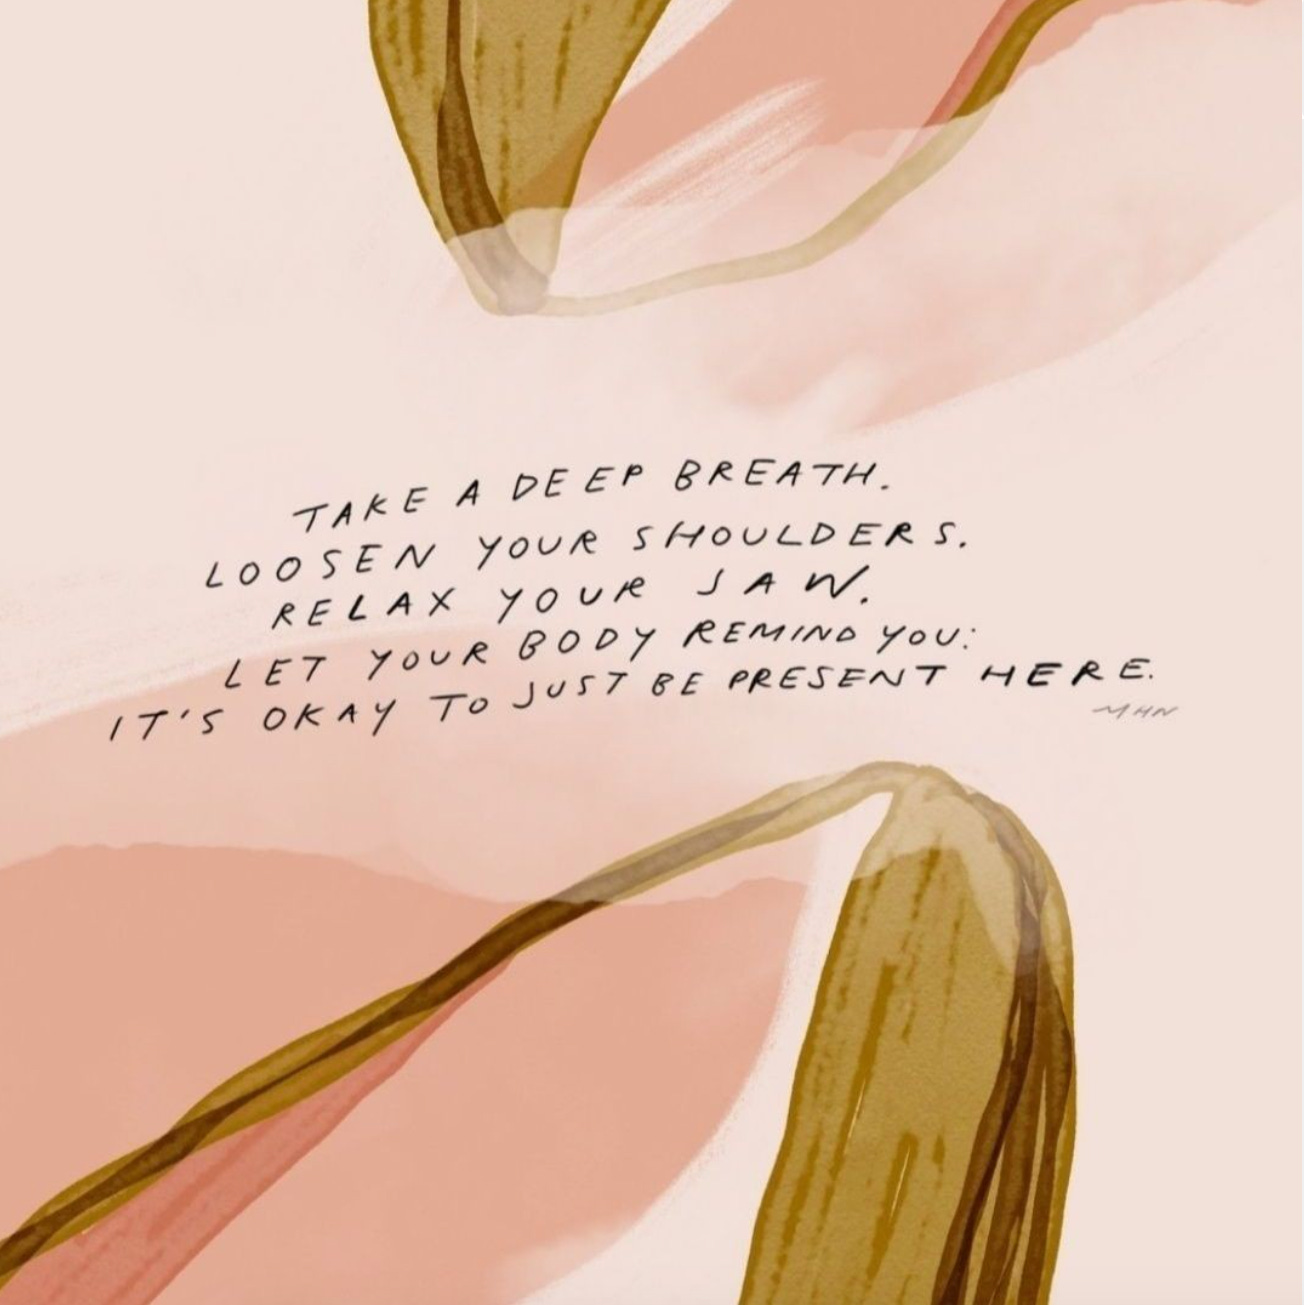 TAKE A DEEP BREATH.
LOOSEN YOUR SHOULDERS.
RELAX YOUR JAW.
LET YOUR BODY REMIND YOU:
IT'S OKAY TO JUST BE PRESENT HERE.
MHN